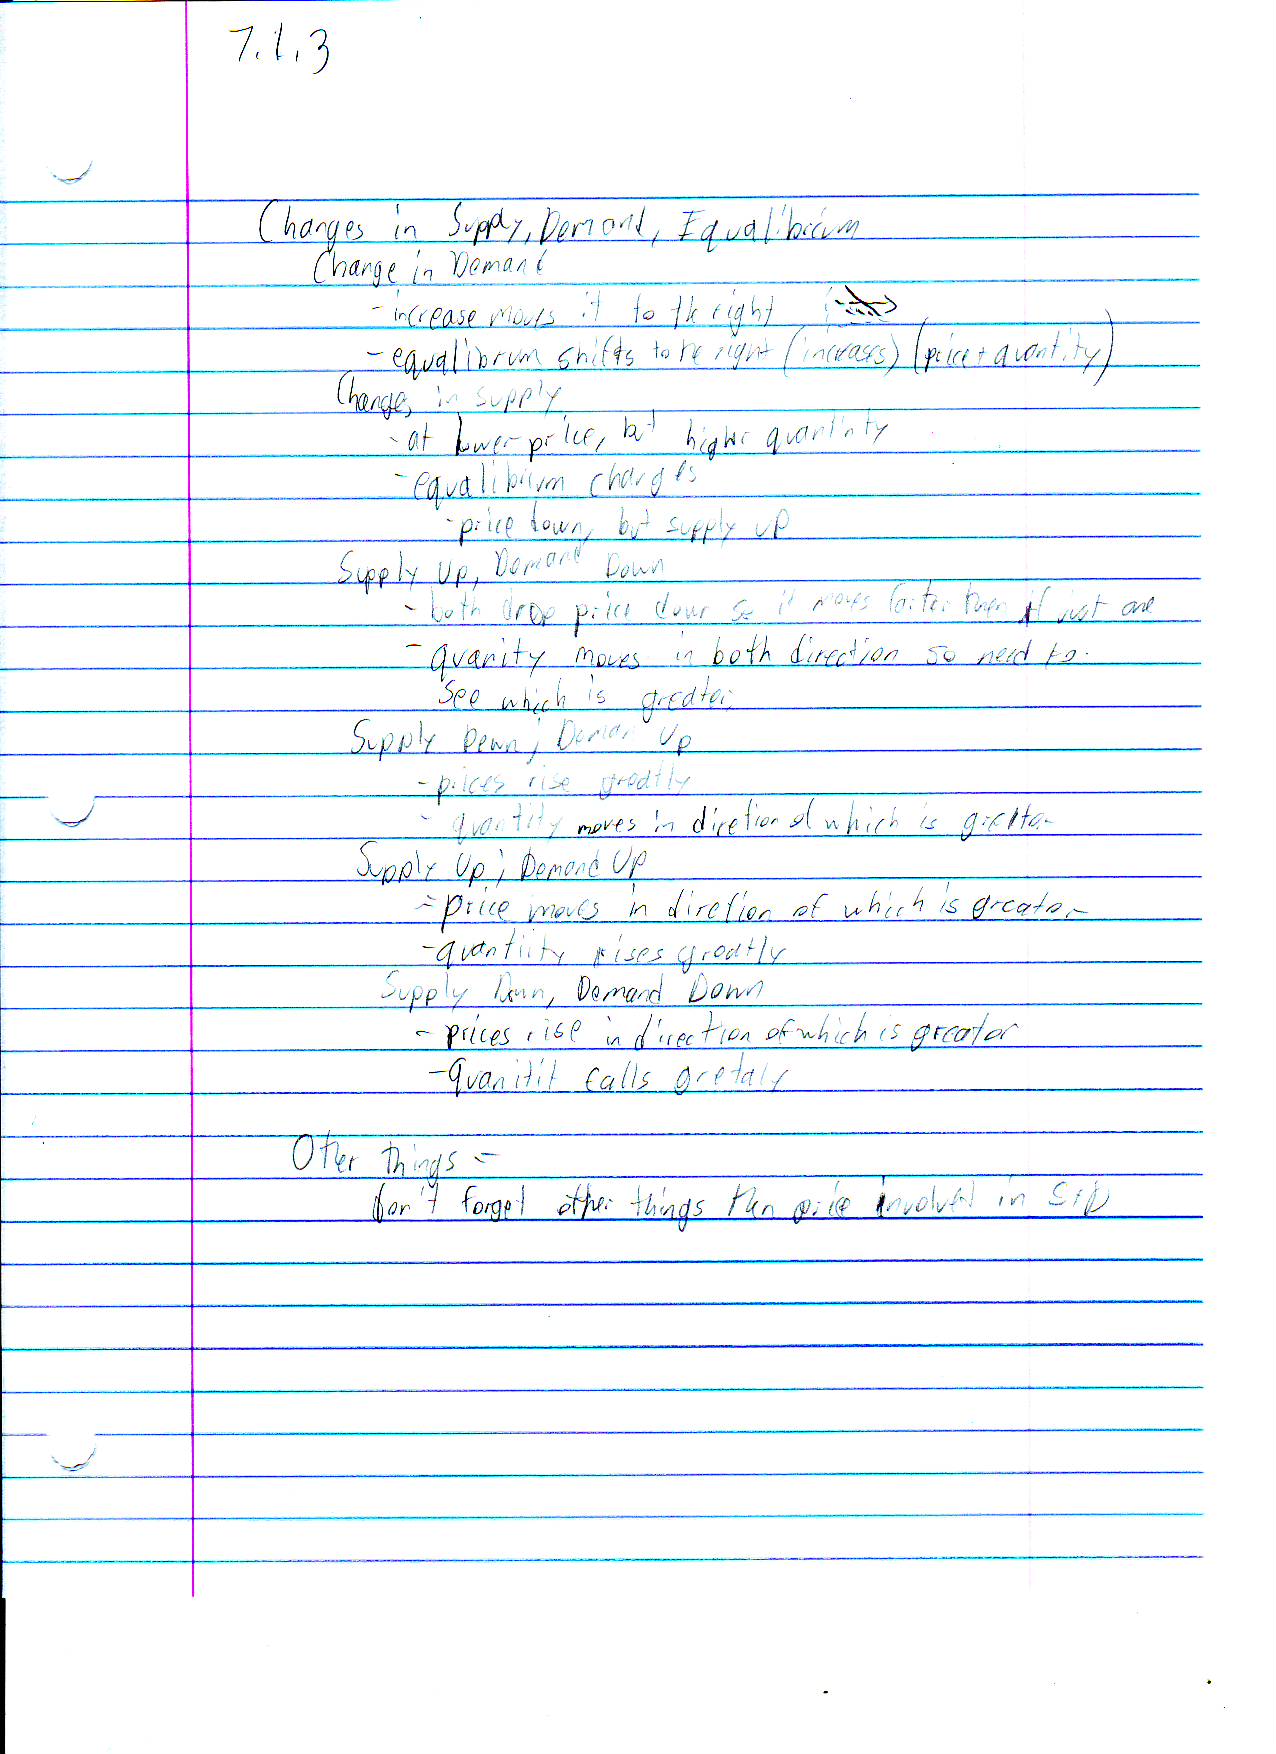 7.1.3
Changes in Supply, Demand, Equalibrium
Change in Demand
- increase moves it to the right
- equalibrum shifts to the right (increases) (price + quantity)
Changes in supply
- at lower price, but higher quantinty
- equalibrium changes
- price down, but supply up
Supply Up, Demand Down
- both drop price down so it moves faster then if just one
- quanity moves in both direction so need to
see which is greater
Supply Down; Deman Up
- prices rise greatly
- quantity moves in diretion of which is greater
Supply Up; Demand Up
- price moves in diretion of which is greater
- quantiity rises greatly
Supply Down, Demand Down
- prices rise in direction of which is greator
- quanitit falls gretaly
Other things -
Don't forget other things then price involved in S+D